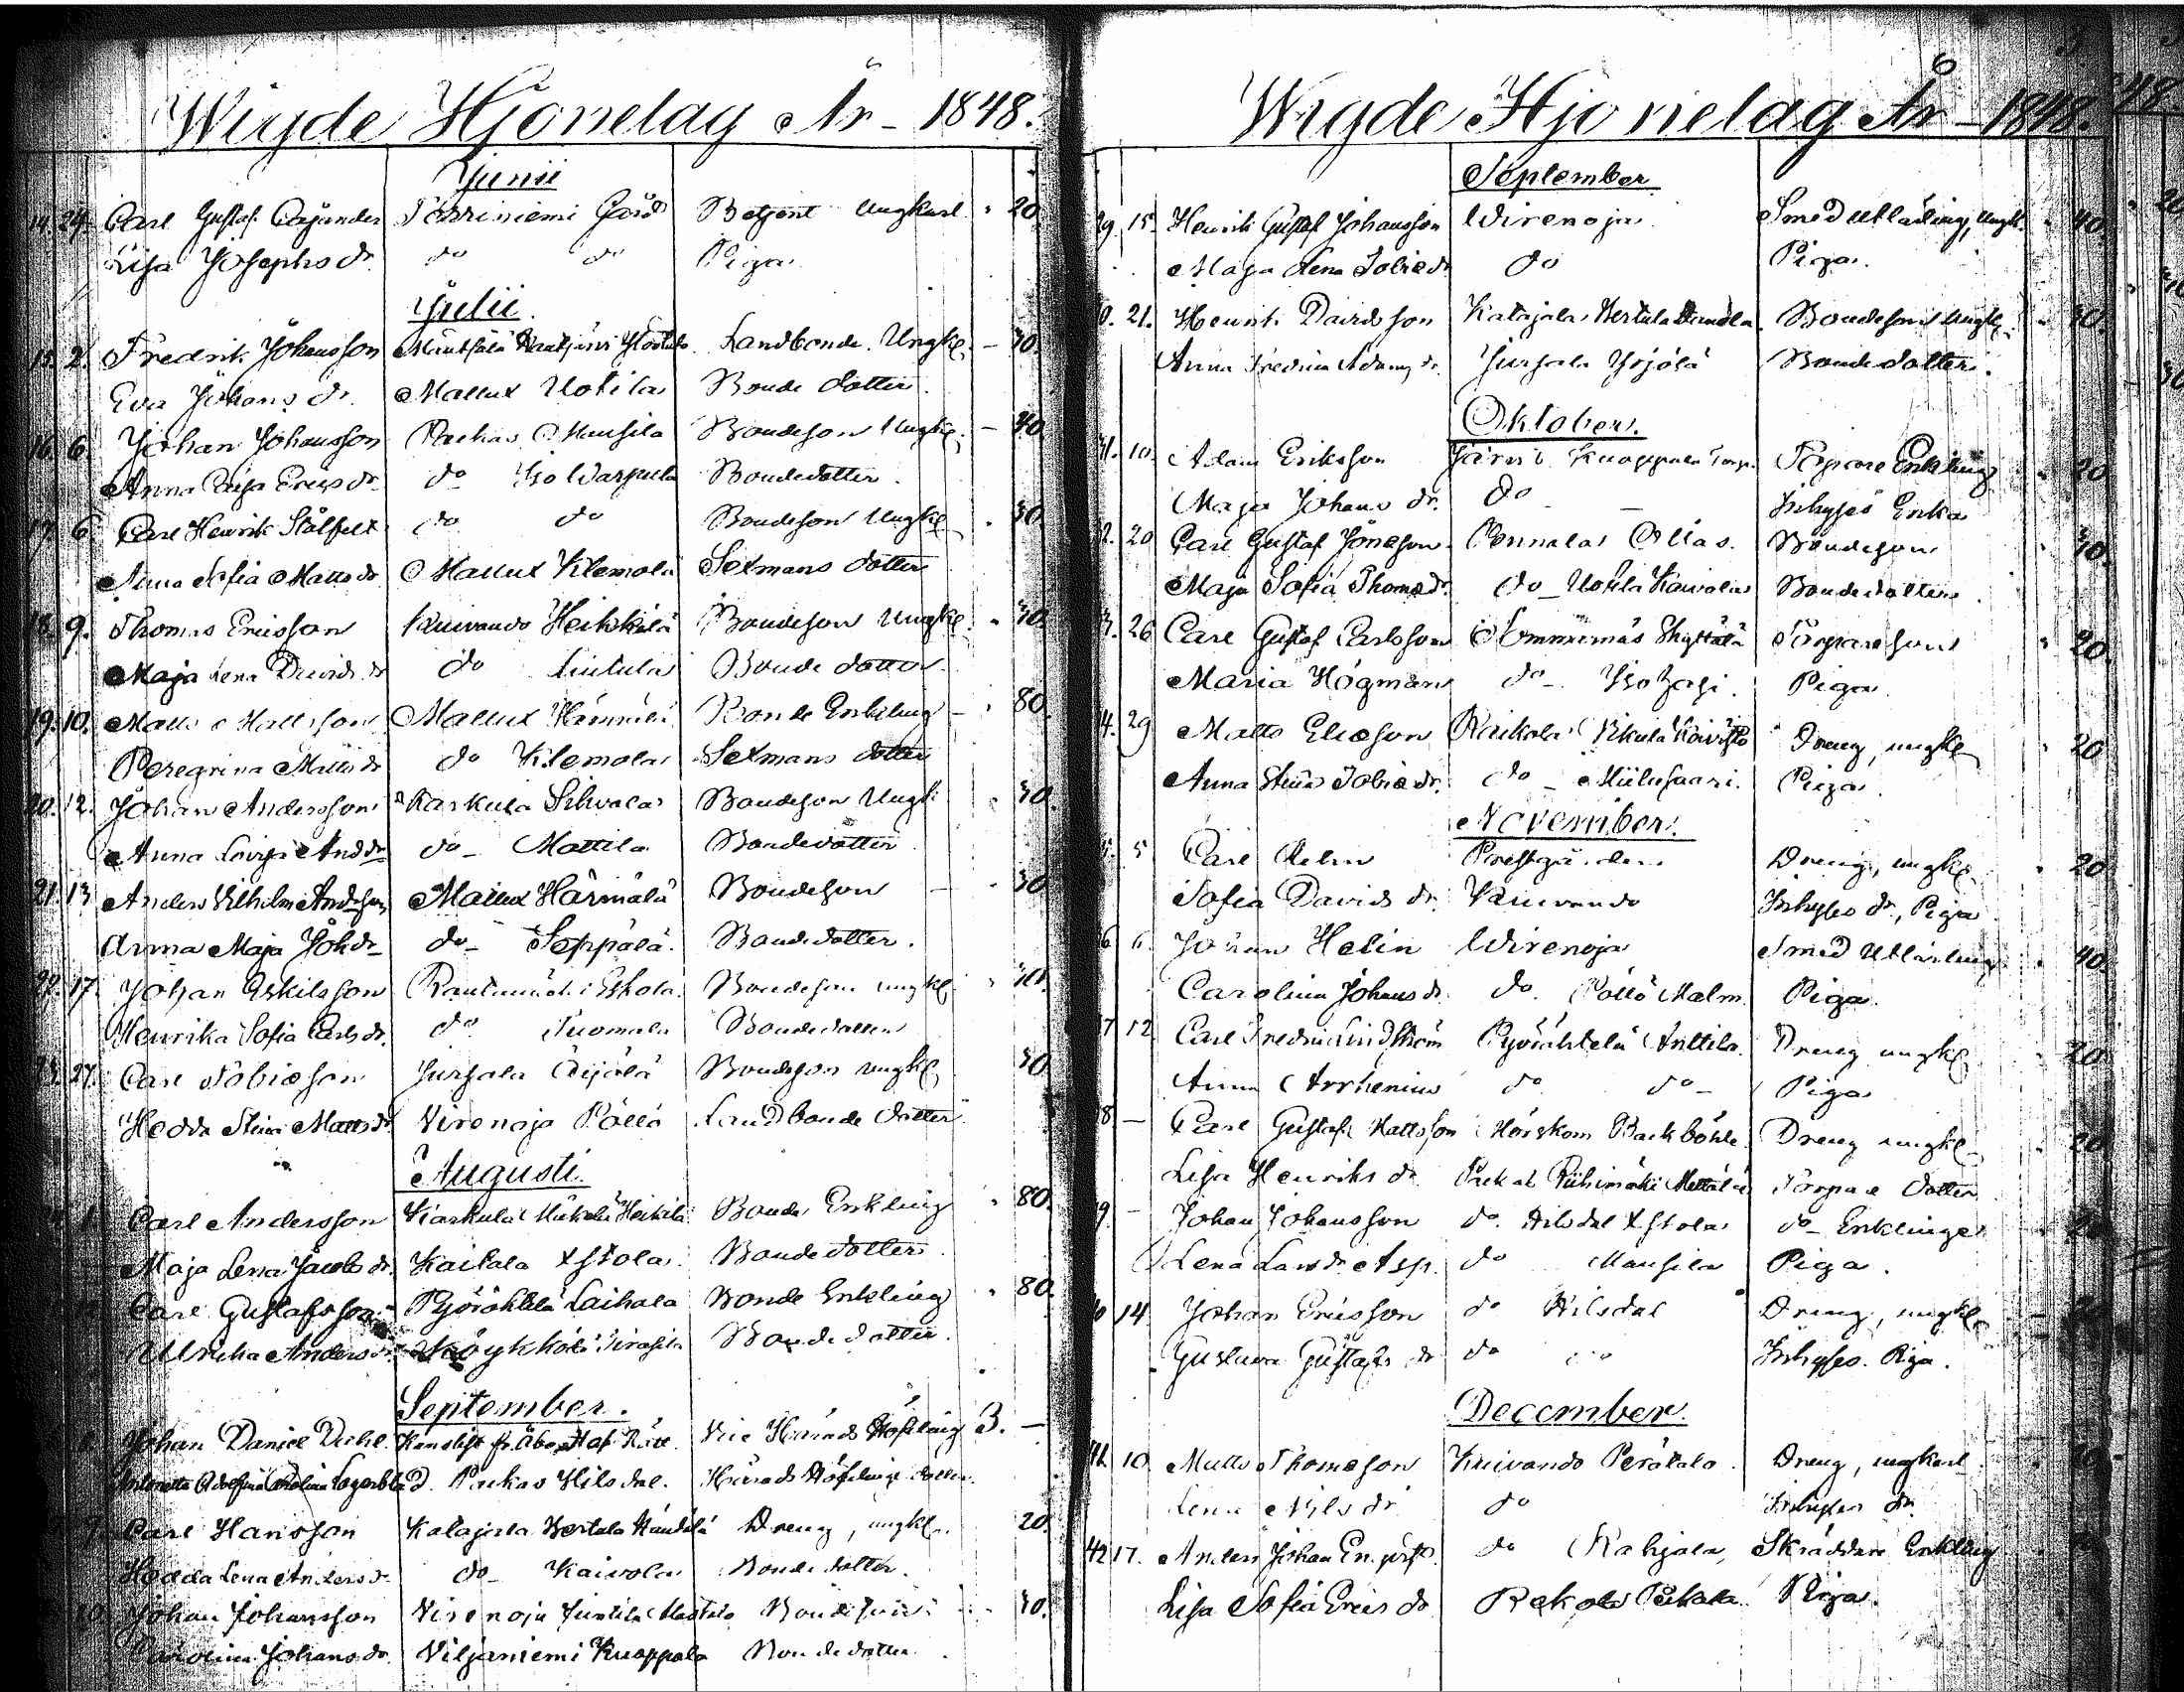 Wigde Hjonelag År - 1848.
Junii
14. 24. Carl Gustaf Cajander Terriniemi Gård Betjent Ungkarl 20
Lisa Josephs dr. do do Piga
Julii.
15. 2. Fredrik Johansson Landbonde Ungkl. - 40.
Eva Johans dr. Mallux Uotila Bonde dotter.
16. 6. Johan Johansson Packas Mansila Bondeson Ungkl. - 40.
Anna Caisa Erics dr. do Iso Warpula Bondedotter.
17. 6 Carl Henrik Stålfelt do do Bondeson Ungkl. 40.
Anna Sofia Matts dr Mallux Klemola Sexmans dotter
18. 9. Thomas Ericsson Kuivando Heikkilä Bondeson Ungkl. 40.
Maja Lena Davids dr do Liutula Bonde dotter.
19. 10. Matts Mattsson Mallux Härmälä Bonde Enkling - 80.
Peregrina Matts dr do Klemola Sexmans dotter
20. 12. Johan Andersson Karkula Sihvola Bondeson Ungk. 40.
Anna Lovisa And. dr do - Mattila Bondedotter
21. 13 Anders Vilhelm Andsson Mallux Härmälä Bondeson - 40
Anna Maja Joh. dr do - Seppälä. Bondedotter.
22. 17. Johan Eskilsson Eskola. Bondeson ungkl. 40.
Henrika Sofia Carls dr. do Tuomala Bondedotter
23. 27. Carl Tobiæson Jursala Äijälä Bondeson ungkl. 40
Hedda Stina Matts dr Virenoja Pöllö Landbonde dotter
Augusti.
1. Carl Andersson Karkula Heikilä Bonde Enkling 80.
Maja Lena Jacobs dr. Kaitala Xstola Bondedotter
Carl Gustafsson Pyöröhtälä Laihala Bonde Enkling 80.
Ulrika Anders dr. Bondedotter.
September.
Johan Daniel Kanslist fr. Åbo Hof Rätt. Vice Härads Höfding 3. -
Antonetta Adolfina Carolina Lagerblad. Packas Hilsdal. Härads Höfdinge dotter.
9. Carl Hansson Katajala Hertala Händälä Dreng, ungkl. 20.
Hedda Lena Anders dr. do - Kaivola Bonde dotter.
Johan Johansson Virenoja Bondeson 40.
Carolina Johans dr. Viljaniemi Knoppala Bondedotter.
Wigde Hjonelag År - 1848.
September
29. 15. Henrik Gustaf Johansson Wirenoja Smed Utlärling, ungk. 40.
Maja Lena Tobiæ dr. do Piga.
30. 21. Henrik Davidsson Katajala Hertala Bondeson Ungkl. 40.
Anna Fredrica Adams dr. Jursala Yrjölä Bondedotter.
Oktober.
31. 10. Adam Eriksson Järvi Knoppala Torp. Torpare Enkling 20
Maja Johans dr. do - Inhyses Enka
32. 20 Carl Gustaf Jönæson Pennala Ollas. Bondeson 40.
Maja Sofia Thomæ dr. do - Uotila Kaivola Bondedotter
33. 26 Carl Gustaf Carlsson Ommernäs Skyttälä Torpareson 20.
Maria Högman do - Piga.
34. 29 Matts Eliæson Dreng, ungkl. 20
Anna Stina Tobiæ dr. do - Miilusaari. Piga.
November.
35. 5 Carl Prestgården Dreng, ungkl. 20
Sofia Davids dr. Kuivando Inhyses dr., Piga
36. 6. Johan Helin Wirenoja Smed Utlärling 40.
Carolina Johans dr. do. Pöllö Malm. Piga.
37 12 Carl Fredric Lindström Pyöröhtälä Anttila. Dreng ungkl. 20
Anna Arrhenius do do - Piga
38 - Carl Gustaf Mattsson Backböhle. Dreng ungkl. 20
Lisa Henriks dr Riihimäki Mattila Torpare dotter
39. - Johan Johansson do. Hilsdal Xstola do - Enklinge 20
Lena Lars dr. Asp. do Mansila Piga.
40 14. Johan Ericsson do Hilsdal Dreng, ungkl.
Gustava Gustafs dr do Inhyses. Piga.
December.
41. 10. Matts Thomæson Kuivando Perätalo. Dreng, ungkarl
Lena Nils dr do Inhyses dr.
42 17. Anders Johan do Rahjala, Skräddare Enkling
Lisa Sofia Erics dr Rekola Piga.